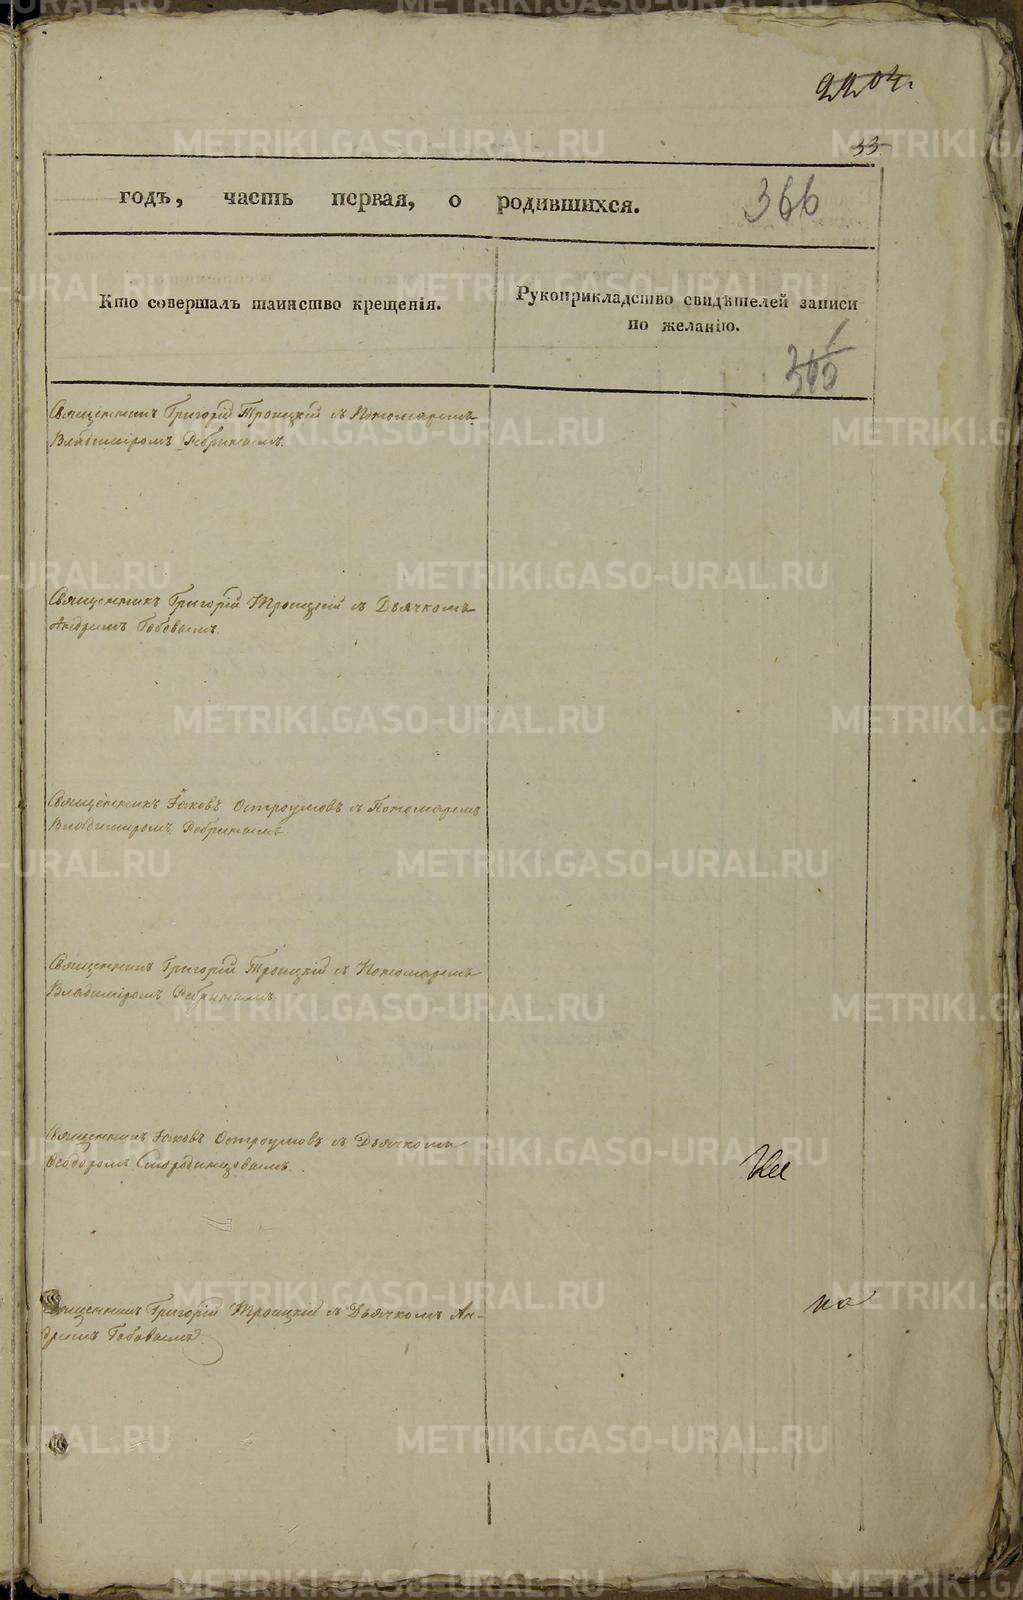 2204.
33
366
годъ, часть первая, о родившихся.
Кто совершалъ таинство крещенія.
Рукоприкладство свидѣтелей записи
по желанію.
365
Священникъ Григорій Троицкій съ Пономаремъ
Владиміромъ Ребринымъ.
Священникъ Григорій Троицкій съ Дьячкомъ
Андреемъ Бабовымъ.
Священникъ Іаковъ Остроумовъ съ Пономаремъ
Владимиромъ Ребринымъ
Священникъ Григорій Троицкій съ Пономаремъ
Владиміромъ Ребринымъ
Священникъ Іаковъ Остроумовъ съ Дьячкомъ
Ѳеодоромъ Смородинцовымъ.
Священникъ Григорій Троицкій съ Дьячкомъ Ан-
дреемъ Бабовымъ.
по
METRIKI.GASO-URAL.RU